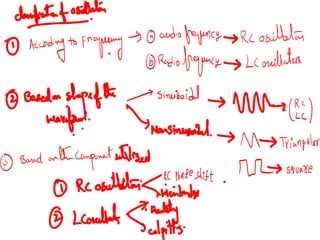 classification of oscillators
① According to Frequency → ⓐ audio frequency → RC oscillators
ⓑ Radio frequency → LC oscillators
② Based on shape of the waveform. → Sinusoidal → (RC LC)
→ Nonsinusoidal. → → Triangular
→ square
③ Based on the Component utilized
① RC oscillators RC Phase shift
Weinbridge
② LC oscillators Hartley
colpitts.